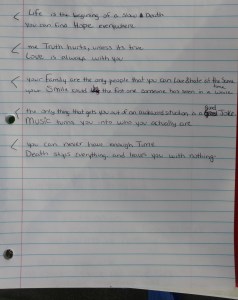 Life is the beginning of a slow Death
You can find Hope everywhere.
The Truth hurts, unless its true.
Love is always with you
Your family are the only people that you can Love & Hate at the same time
your Smile could be the first one someone has seen in a while.
The only thing that gets you out of an awkward situation is a Good Joke
Music turns you into who you actually are.
You can never have enough Time
Death stops everything and leaves you with nothing.